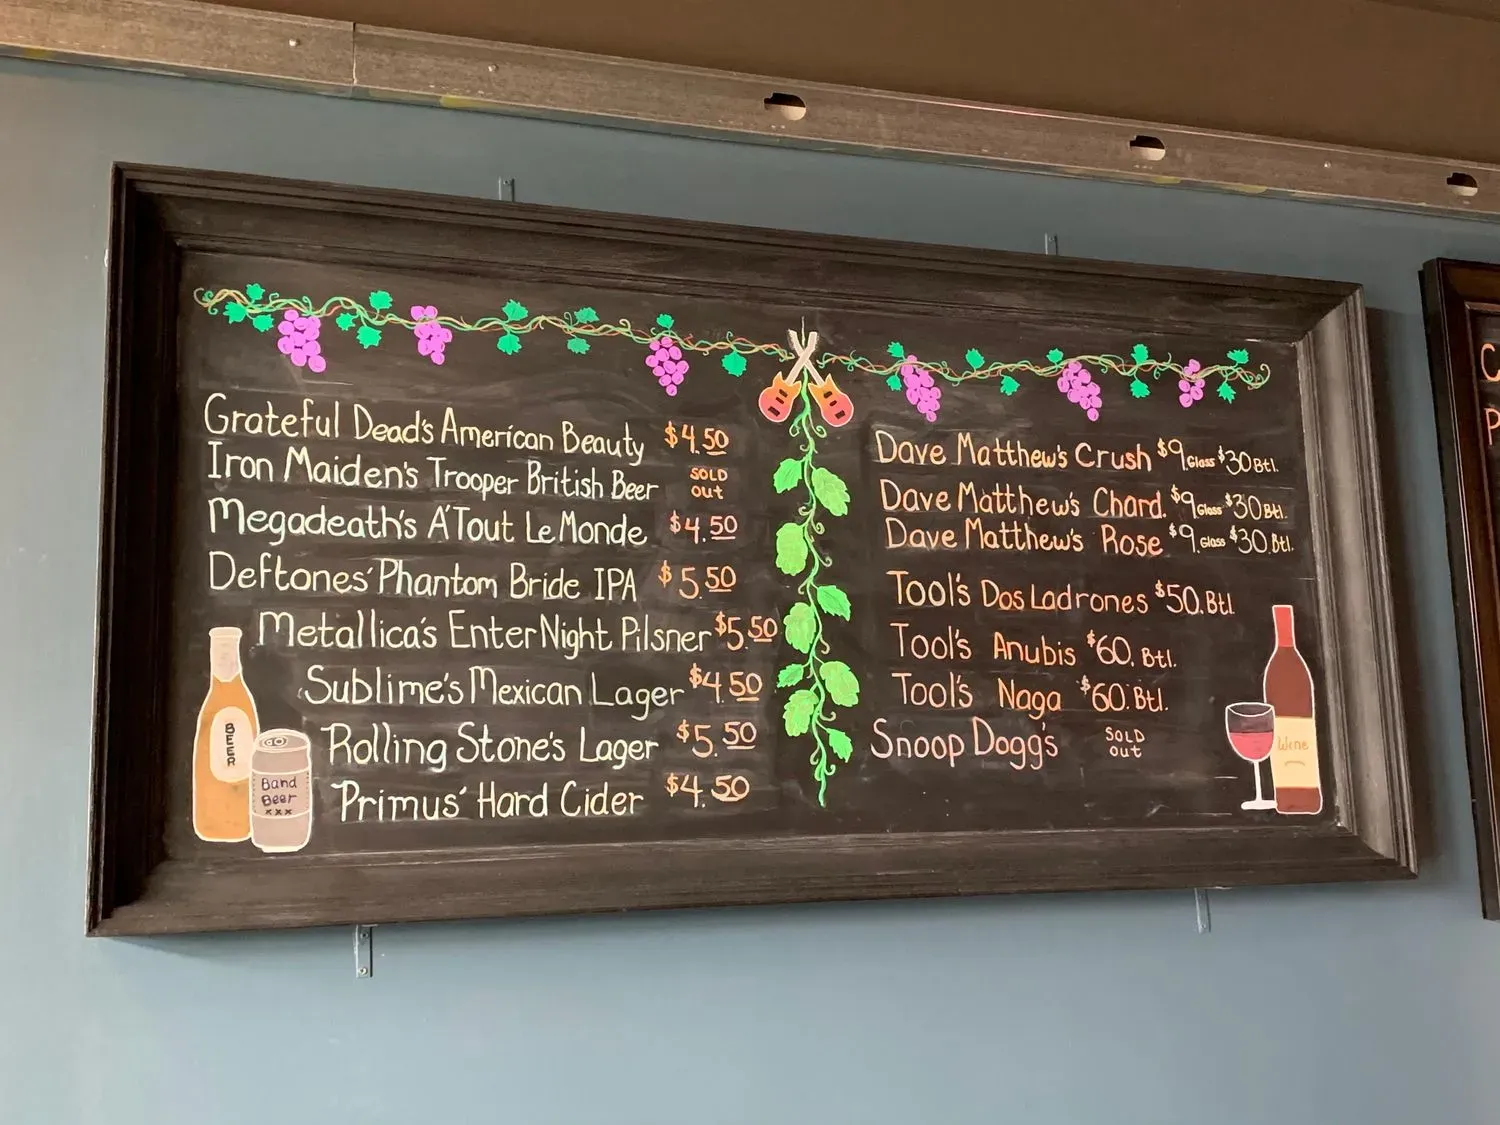 Grateful Dead's American Beauty $4.50
Iron Maiden's Trooper British Beer SOLD out
Megadeath's A'Tout Le Monde $4.50
Deftones' Phantom Bride IPA $5.50
Metallica's Enter Night Pilsner $5.50
Sublime's Mexican Lager $4.50
Rolling Stone's Lager $5.50
Primus' Hard Cider $4.50
BEER
Band
Beer
xxx
Dave Matthew's Crush $9. Glass $30 Btl.
Dave Matthew's Chard. $9 Glass $30 Btl.
Dave Matthew's Rose $9. Glass $30. Btl.
Tool's Dos Ladrones $50. Btl
Tool's Anubis $60. Btl.
Tool's Naga $60. Btl.
Snoop Dogg's SOLD out
Wine